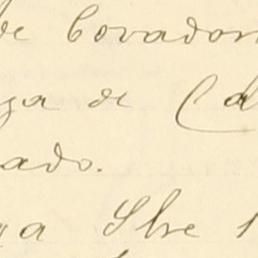 de Covadon
ga de Ca
ado.
ga Slre